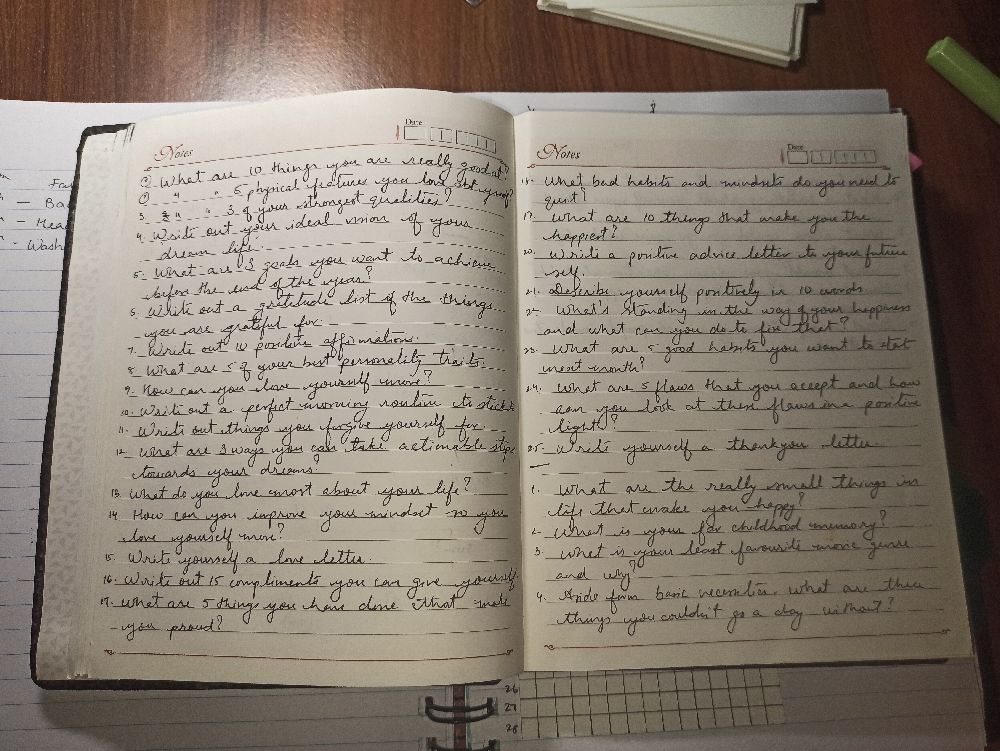 Fav
Ba
Hea
Wash
Notes
Date
1. What are 10 things you are really good at?
2. " " 5 physical features you love abt yourself?
3. " " 3 of your strongest qualities?
4. Write out your ideal vision of your
dream life.
5. What are 3 goals you want to achieve
before the end of the year?
6. Write out a gratitude list of the things
you are grateful for.
7. Write out 10 positive affirmations.
8. What are 5 of your best personality traits.
9. How can you love yourself more?
10. Write out a perfect morning routine to stick to
11. Write out things you forgive yourself for.
12. What are 3 ways you can take actionable steps
towards your dreams?
13. What do you love most about your life?
14. How can you improve your mindset so you
love yourself more?
15. Write yourself a love letter.
16. Write out 15 compliments you can give yourself
17. What are 5 things you have done that make
you proud?
Notes
Date
18. What bad habits and mindsets do you need to
quit?
19. What are 10 things that make you the
happiest?
20. Write a positive advice letter to your future
self.
21. Describe yourself positively in 10 words
22. What's standing in the way of your happiness
and what can you do to fix that?
23. What are 5 good habits you want to start
next month?
24. What are 5 flaws that you accept and how
can you look at these flaws in a positive
light?
25. Write yourself a thankyou letter.
1. What are the really small things in
life that make you happy?
2. What is your fav childhood memory?
3. What is your least favourite movie genre
and why?
4. Aside from basic necessities what are three
things you couldn't go a day without?
26
27
28